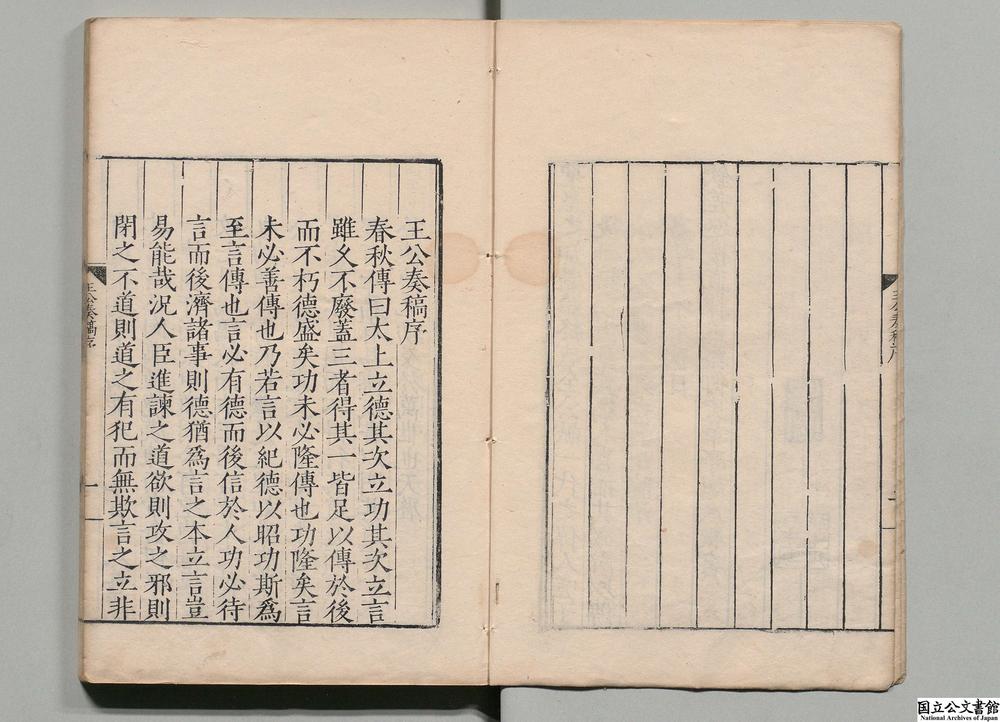 王公奏稿序
春秋傳曰太上立德其次立功其次立言
雖久不廢蓋三者得其一皆足以傳於後
而不朽德盛矣功未必隆傳也功隆矣言
未必善傳也乃若言以紀德以昭功斯爲
至言傳也言必有德而後信於人功必待
言而後濟諸事則德猶爲言之本立言豈
易能哉況人臣進諫之道欲則攻之邪則
閉之不道則道之有犯而無欺言之立非
王公奏稿序
一
王公奏稿序
國立公文書館
National Archives of Japan